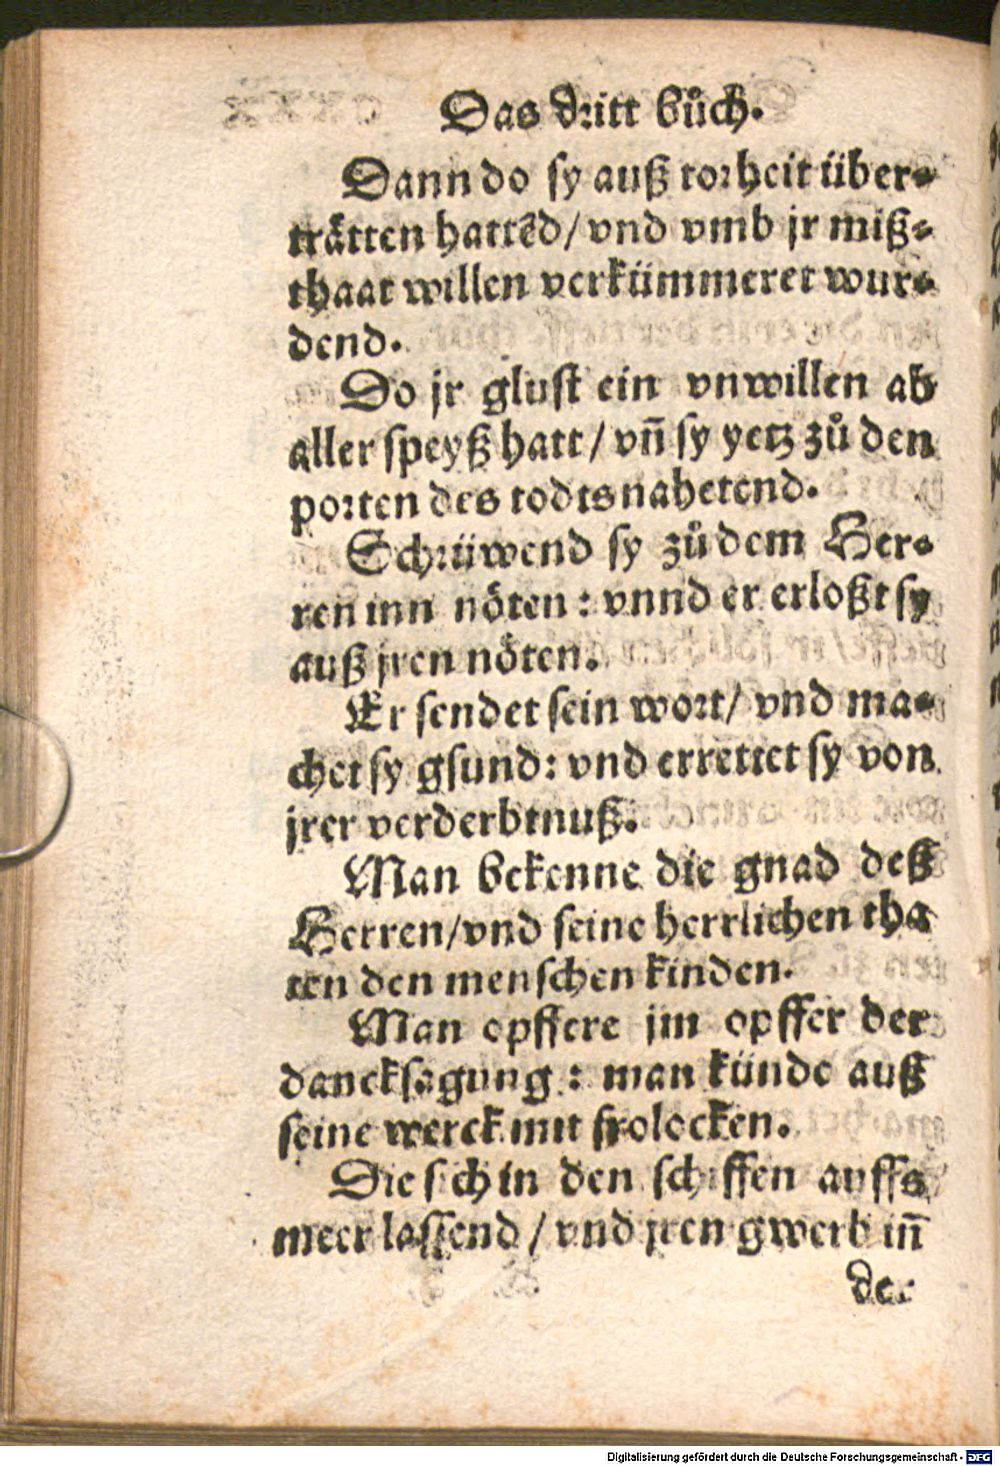 Das dritt bůch.
Dann do sy auß torheit über⸗
trätten hattẽd/ vnd vmb jr miß⸗
thaat willen verkümmeret wur⸗
dend.
Do jr glust ein vnwillen ab
aller speyß hatt/ vñ sy yetz zů den
porten des todts nahetend.
Schrüwend sy zů dem Her⸗
ren inn nöten: vnnd er erloßt sy
auß jren nöten.
Er sendet sein wort/ vnd ma⸗
chet sy gsund: vnd errettet sy von
jrer verderbtnuß.
Man bekenne die gnad deß
Herren/vnd seine herrlichen tha
ten den menschen kinden.
Man opffere jm opffer der
dancksagung: man künde auß
seine werck mit frolocken.
Die sich in den schiffen auffs
meer lassend/ vnd jren gwerb iñ
der
Digitalisierung gefördert durch die Deutsche Forschungsgemeinschaft - DFG